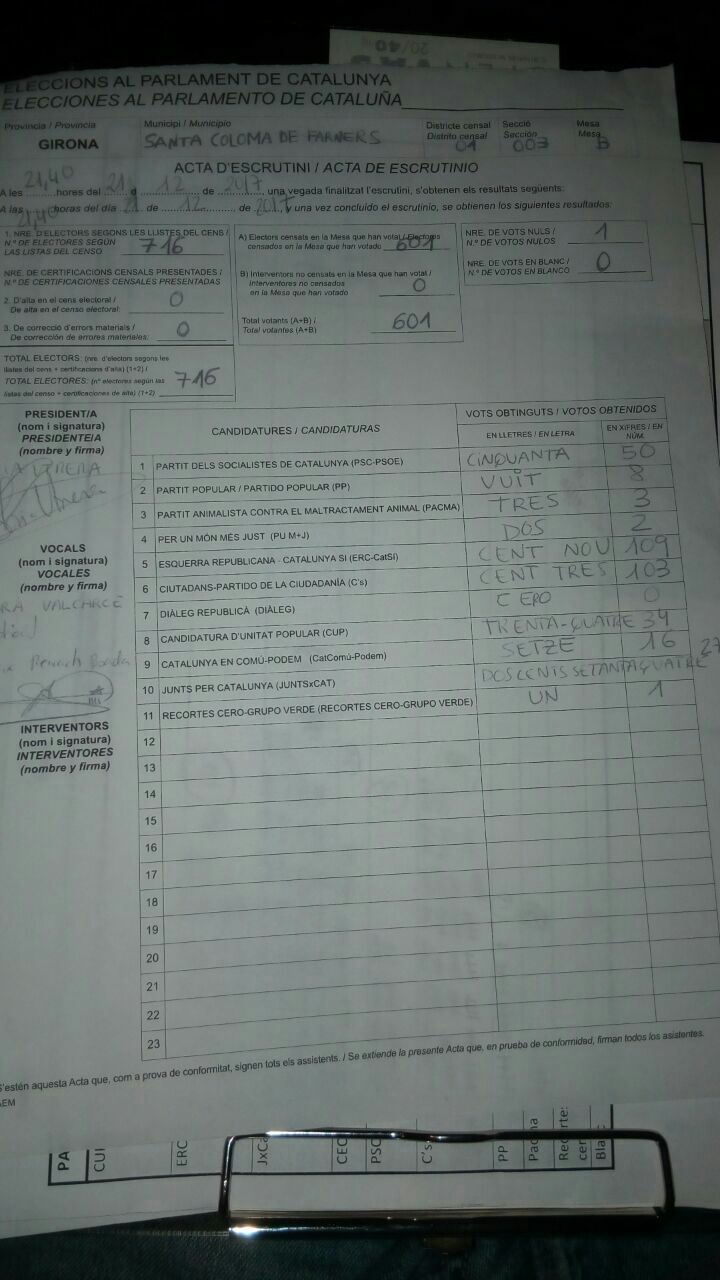 20/40
ELECCIONS AL PARLAMENT DE CATALUNYA
ELECCIONES AL PARLAMENTO DE CATALUÑA
Província / Provincia
GIRONA
Municipi / Municipio
SANTA COLOMA DE FARNERS
Districte censal
Distrito censal
01
Secció
Sección
003
Mesa
Mesa
B
ACTA D'ESCRUTINI / ACTA DE ESCRUTINIO
A les 21,40 hores del 21 d 12 de 2017 una vegada finalitzat l'escrutini, s'obtenen els resultats següents:
A las 21,40 horas del día 21 de 12 de 2017, y una vez concluído el escrutinio, se obtienen los siguientes resultados:
1. NRE. D'ELECTORS SEGONS LES LLISTES DEL CENS /
N.º DE ELECTORES SEGÚN
LAS LISTAS DEL CENSO
716
NRE. DE CERTIFICACIONS CENSALS PRESENTADES /
N.º DE CERTIFICACIONES CENSALES PRESENTADAS
2. D'alta en el cens electoral /
De alta en el censo electoral:
0
3. De correcció d'errors materials /
De corrección de errores materiales:
0
TOTAL ELECTORS: (nre. d'electors segons les
llistes del cens + certificacions d'alta) (1+2) /
TOTAL ELECTORES: (nº electores según las
listas del censo + certificaciones de alta) (1+2)
716
A) Electors censats en la Mesa que han votat / Electores
censados en la Mesa que han votado
601
B) Interventors no censats en la Mesa que han votat /
Interventores no censados
en la Mesa que han votado
0
Total votants (A+B) /
Total votantes (A+B)
601
NRE. DE VOTS NULS /
N.º DE VOTOS NULOS
1
NRE. DE VOTS EN BLANC /
N.º DE VOTOS EN BLANCO
0
PRESIDENT/A
(nom i signatura)
PRESIDENTE/A
(nombre y firma)
VOCALS
(nom i signatura)
VOCALES
(nombre y firma)
VALCARCE
INTERVENTORS
(nom i signatura)
INTERVENTORES
(nombre y firma)
CANDIDATURES / CANDIDATURAS
VOTS OBTINGUTS / VOTOS OBTENIDOS
EN LLETRES / EN LETRA
EN XIFRES / EN
NÚM.
1 PARTIT DELS SOCIALISTES DE CATALUNYA (PSC-PSOE) CINQUANTA 50
2 PARTIT POPULAR / PARTIDO POPULAR (PP) VUIT 8
3 PARTIT ANIMALISTA CONTRA EL MALTRACTAMENT ANIMAL (PACMA) TRES 3
4 PER UN MÓN MÉS JUST (PU M+J) DOS 2
5 ESQUERRA REPUBLICANA - CATALUNYA SI (ERC-CatSí) CENT NOU 109
6 CIUTADANS-PARTIDO DE LA CIUDADANÍA (C's) CENT TRES 103
7 DIÀLEG REPUBLICÀ (DIÀLEG) CERO 0
8 CANDIDATURA D'UNITAT POPULAR (CUP) TRENTA-QUATRE 34
9 CATALUNYA EN COMÚ-PODEM (CatComú-Podem) SETZE 16
10 JUNTS PER CATALUNYA (JUNTSxCAT) DOSCENTS SETANTAQUATRE 27
11 RECORTES CERO-GRUPO VERDE (RECORTES CERO-GRUPO VERDE) UN 1
12
13
14
15
16
17
18
19
20
21
22
23
S'estén aquesta Acta que, com a prova de conformitat, signen tots els assistents. / Se extiende la presente Acta que, en prueba de conformidad, firman todos los asistentes.
PA
CUI
ERC
JxCa
CEC
PSC
C's
PP
Pacma
Recorte:
cer
Blan